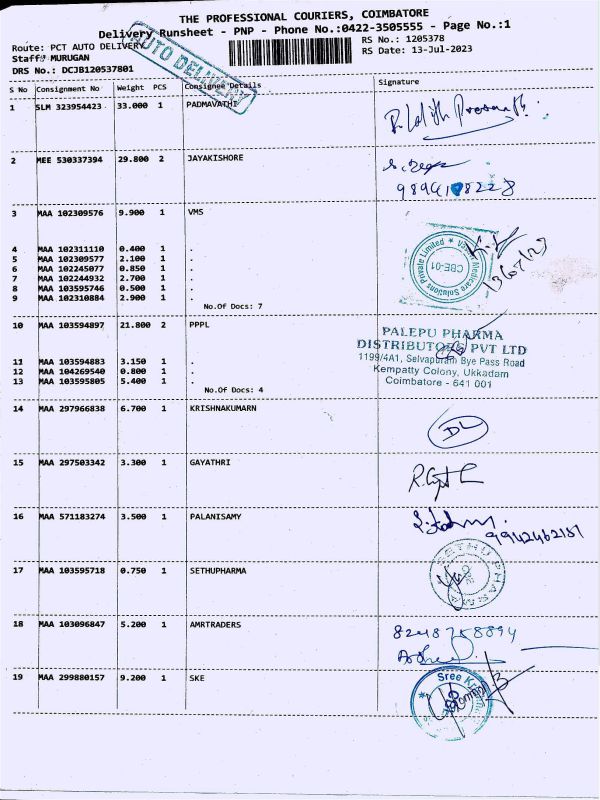 THE PROFESSIONAL COURIERS, COIMBATORE
Delivery Runsheet - PNP - Phone No.:0422-3505555 - Page No.:1
Route: PCT AUTO DELIVERY
RS No.: 1205378
Staff: MURUGAN
RS Date: 13-Jul-2023
DRS No.: DCJB120537801
AUTO DELIVERY
S No Consignment No Weight PCS Consignee Details Signature
1 SLM 323954423 33.000 1 PADMAVATHI
2 MEE 530337394 29.800 2 JAYAKISHORE
3 MAA 102309576 9.900 1 VMS
4 MAA 102311110 0.400 1 .
5 MAA 102309577 2.100 1 .
6 MAA 102245077 0.850 1 .
7 MAA 102244932 2.700 1 .
8 MAA 103595746 0.500 1 .
9 MAA 102310884 2.900 1 .
No.Of Docs: 7
Medicare Solutions Private Limited
CBE-01
13/07/23
10 MAA 103594897 21.800 2 PPPL
PALEPU PHARMA
DISTRIBUTORS PVT LTD
1199/4A1, Selvapuram Bye Pass Road
Kempatty Colony, Ukkadam
Coimbatore - 641 001
11 MAA 103594883 3.150 1 .
12 MAA 104269540 0.800 1 .
13 MAA 103595805 5.400 1 .
No.Of Docs: 4
14 MAA 297966838 6.700 1 KRISHNAKUMARN
15 MAA 297503342 3.300 1 GAYATHRI
16 MAA 571183274 3.500 1 PALANISAMY
9942462181
17 MAA 103595718 0.750 1 SETHUPHARMA
SETHU PHARMA
CBE
18 MAA 103096847 5.200 1 AMRTRADERS
8248758894
19 MAA 299880157 9.200 1 SKE
Sree